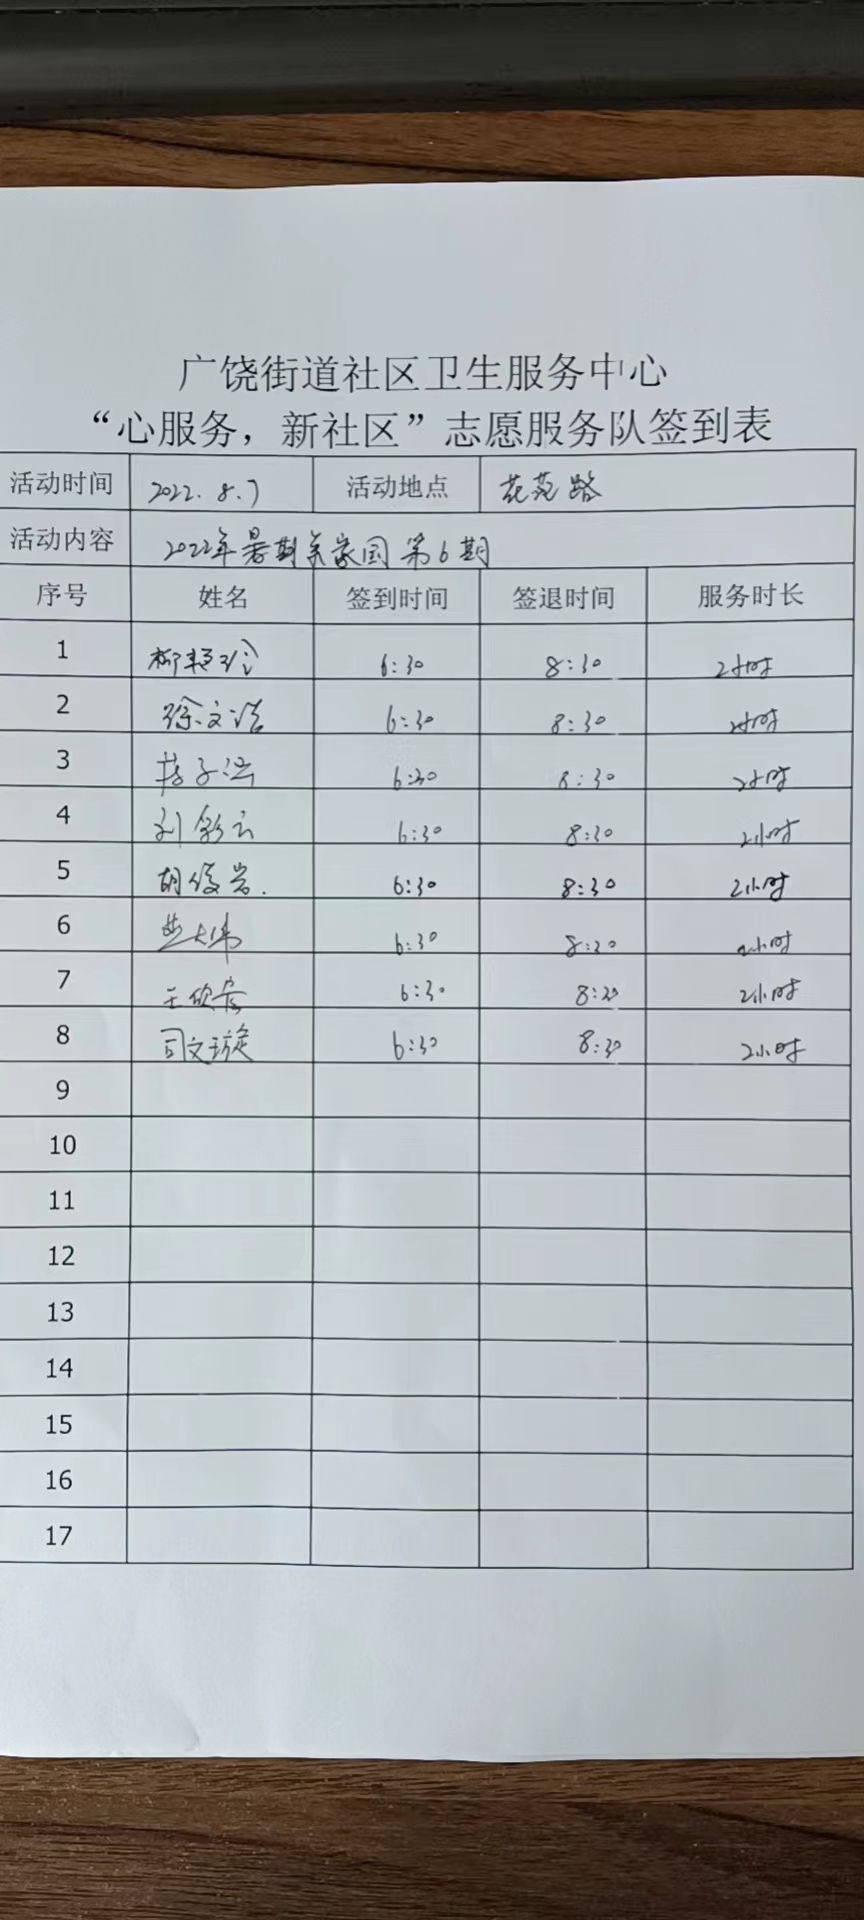 广饶街道社区卫生服务中心
“心服务，新社区”志愿服务队签到表
活动时间 2022.8.7 活动地点 花苑路
活动内容 2022年暑期 第6期
序号 姓名 签到时间 签退时间 服务时长
1 6:30 8:30 2小时
2 徐文浩 6:30 8:30 2小时
3 6:30 8:30 2小时
4 刘彩云 6:30 8:30 2小时
5 胡俊岩. 6:30 8:30 2小时
6 6:30 8:30 2小时
7 王欣 6:30 8:30 2小时
8 司文璇 6:30 8:30 2小时
9
10
11
12
13
14
15
16
17